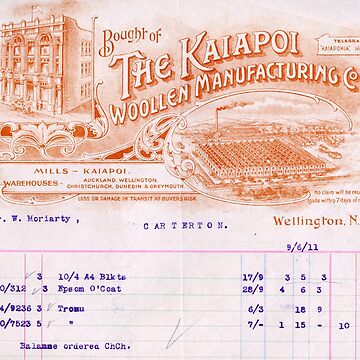 Bought of
THE KAIAPOI
WOOLLEN MANUFACTURING Co
TELEGRA
"KAIAPOINIA" W
MILLS - KAIAPOI.
WAREHOUSES - AUCKLAND, WELLINGTON,
CHRISTCHURCH, DUNEDIN & GREYMOUTH.
LOSS OR DAMAGE IN TRANSIT AT BUYERS RISK
No claim will be reco
made within 7 days of r
r. W. Moriarty,
CARTERTON.
Wellington, N.
9/6/11
3 10/4 A4 Blkts 17/9 3 5 3
0/312 3 Epsom O'Coat 28/9 4 6 3
4/9236 3 Tromu 6/3 18 9
0/7523 5 " 7/- 1 15 - 10
Balanne ordered ChCh.